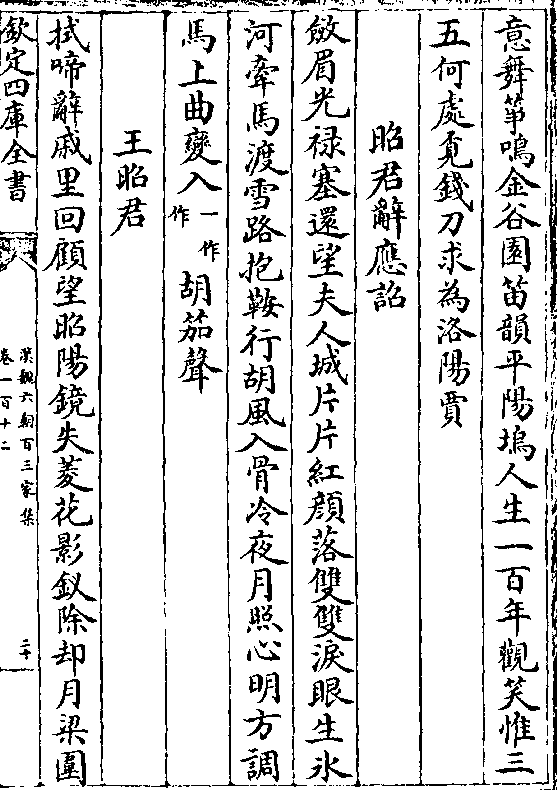 意舞筝鳴金谷園笛韻平陽塢人生一百年觀笑惟三
五何處覓錢刀求為洛陽賈
昭君辭應詔
斂眉光禄塞還望夫人城片片紅顔落雙雙淚眼生氷
河牽馬渡雪路抱鞍行胡風入骨冷夜月照心明方調
馬上曲變入一作作胡笳聲
王昭君
拭啼辭戚里回顧望昭陽鏡失菱花影釵除却月梁圍
欽定四庫全書
漢魏六朝百三家集
卷一百十二
二十